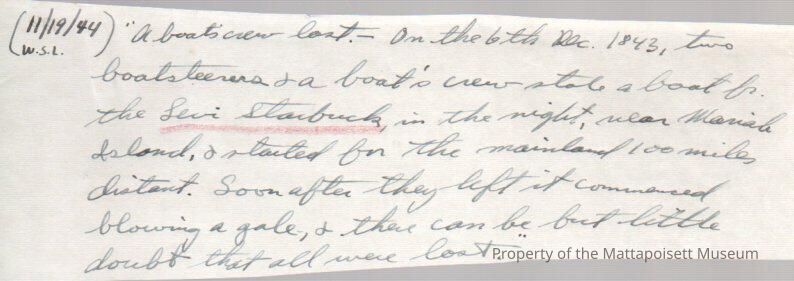 (11/19/44) "A boat's crew lost. – On the 6th Dec. 1843, two
W.S.L.
boatsteerers & a boat's crew stole a boat fr.
the Levi Starbuck, in the night, near Mariah
Island, & started for the mainland 100 miles
distant. Soon after they left it commenced
blowing a gale, & there can be but little
doubt that all were lost."
Property of the Mattapoisett Museum